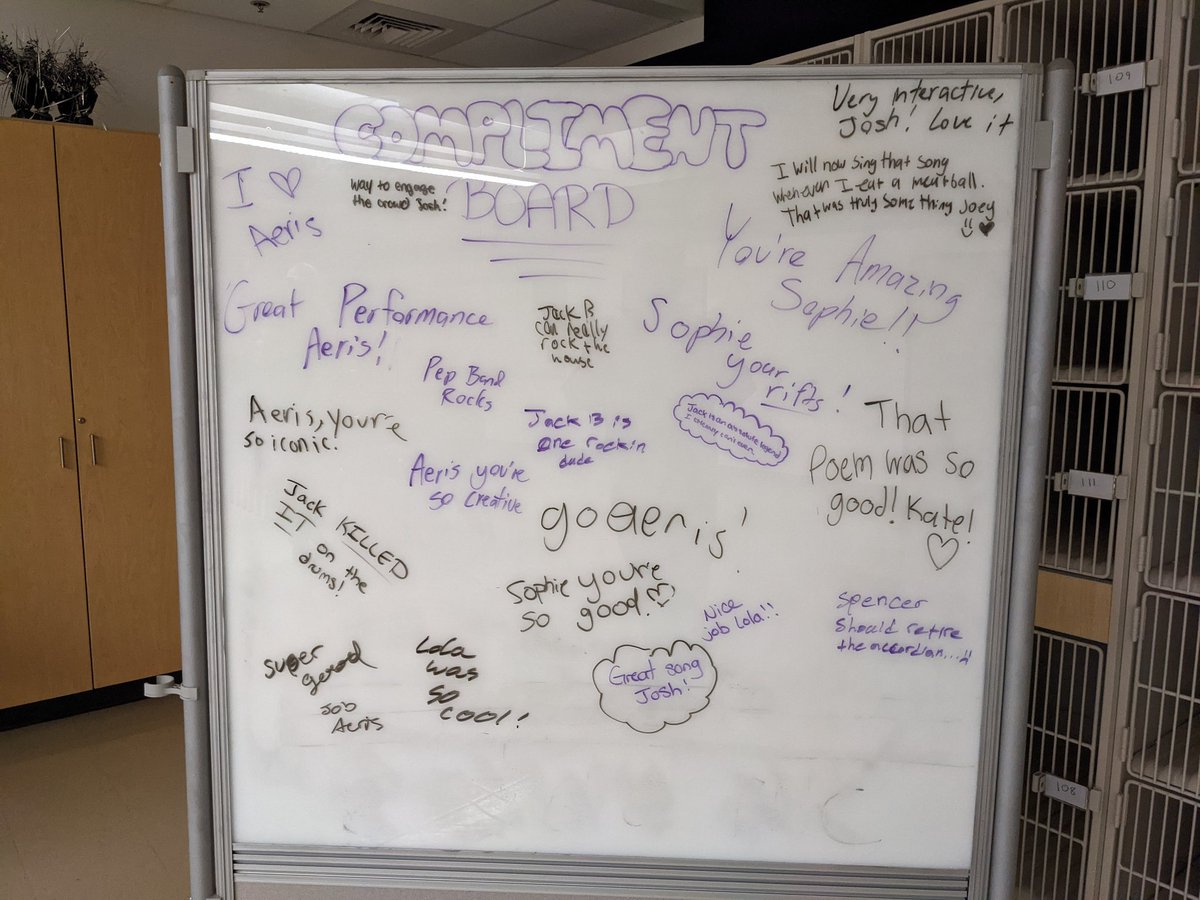 COMPLIMENT
BOARD
Very interactive,
Josh! Love it
I will now sing that song
whenever I eat a meatball.
That was truly something Joey
I ♡
Aeris
way to engage
the crowd Josh!
You're Amazing
Sophie!!
Great Performance
Aeris!
Jack B
can really
rock the
house
Sophie
your
rifts!
Pep Band
Rocks
Jack B is
one rockin
dude
Jack is an absolute legend
I literally can't even
Aeris, you're
so iconic!
That
Poem was so
good! Kate!
Aeris you're
so creative
Jack KILLED
IT on
the
drums!
go aeris!
Sophie you're
so good!
Nice
job Lola!!
Spencer
Should retire
the accordian...!!
super
gerod
Job
Aeris
Lola
was
so
cool!
Great song
Josh!
109
110
111
108